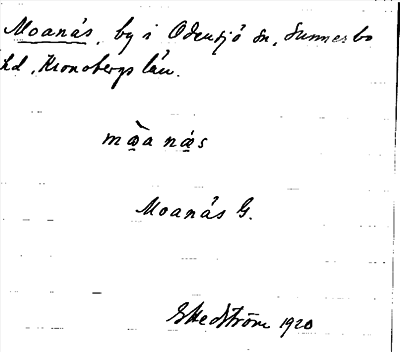 Moanäs, by i Odensjö sn, Sunnerbo
hd, Kronobergs län.
mòa näs
Moanäs G.
G Hedström 1920